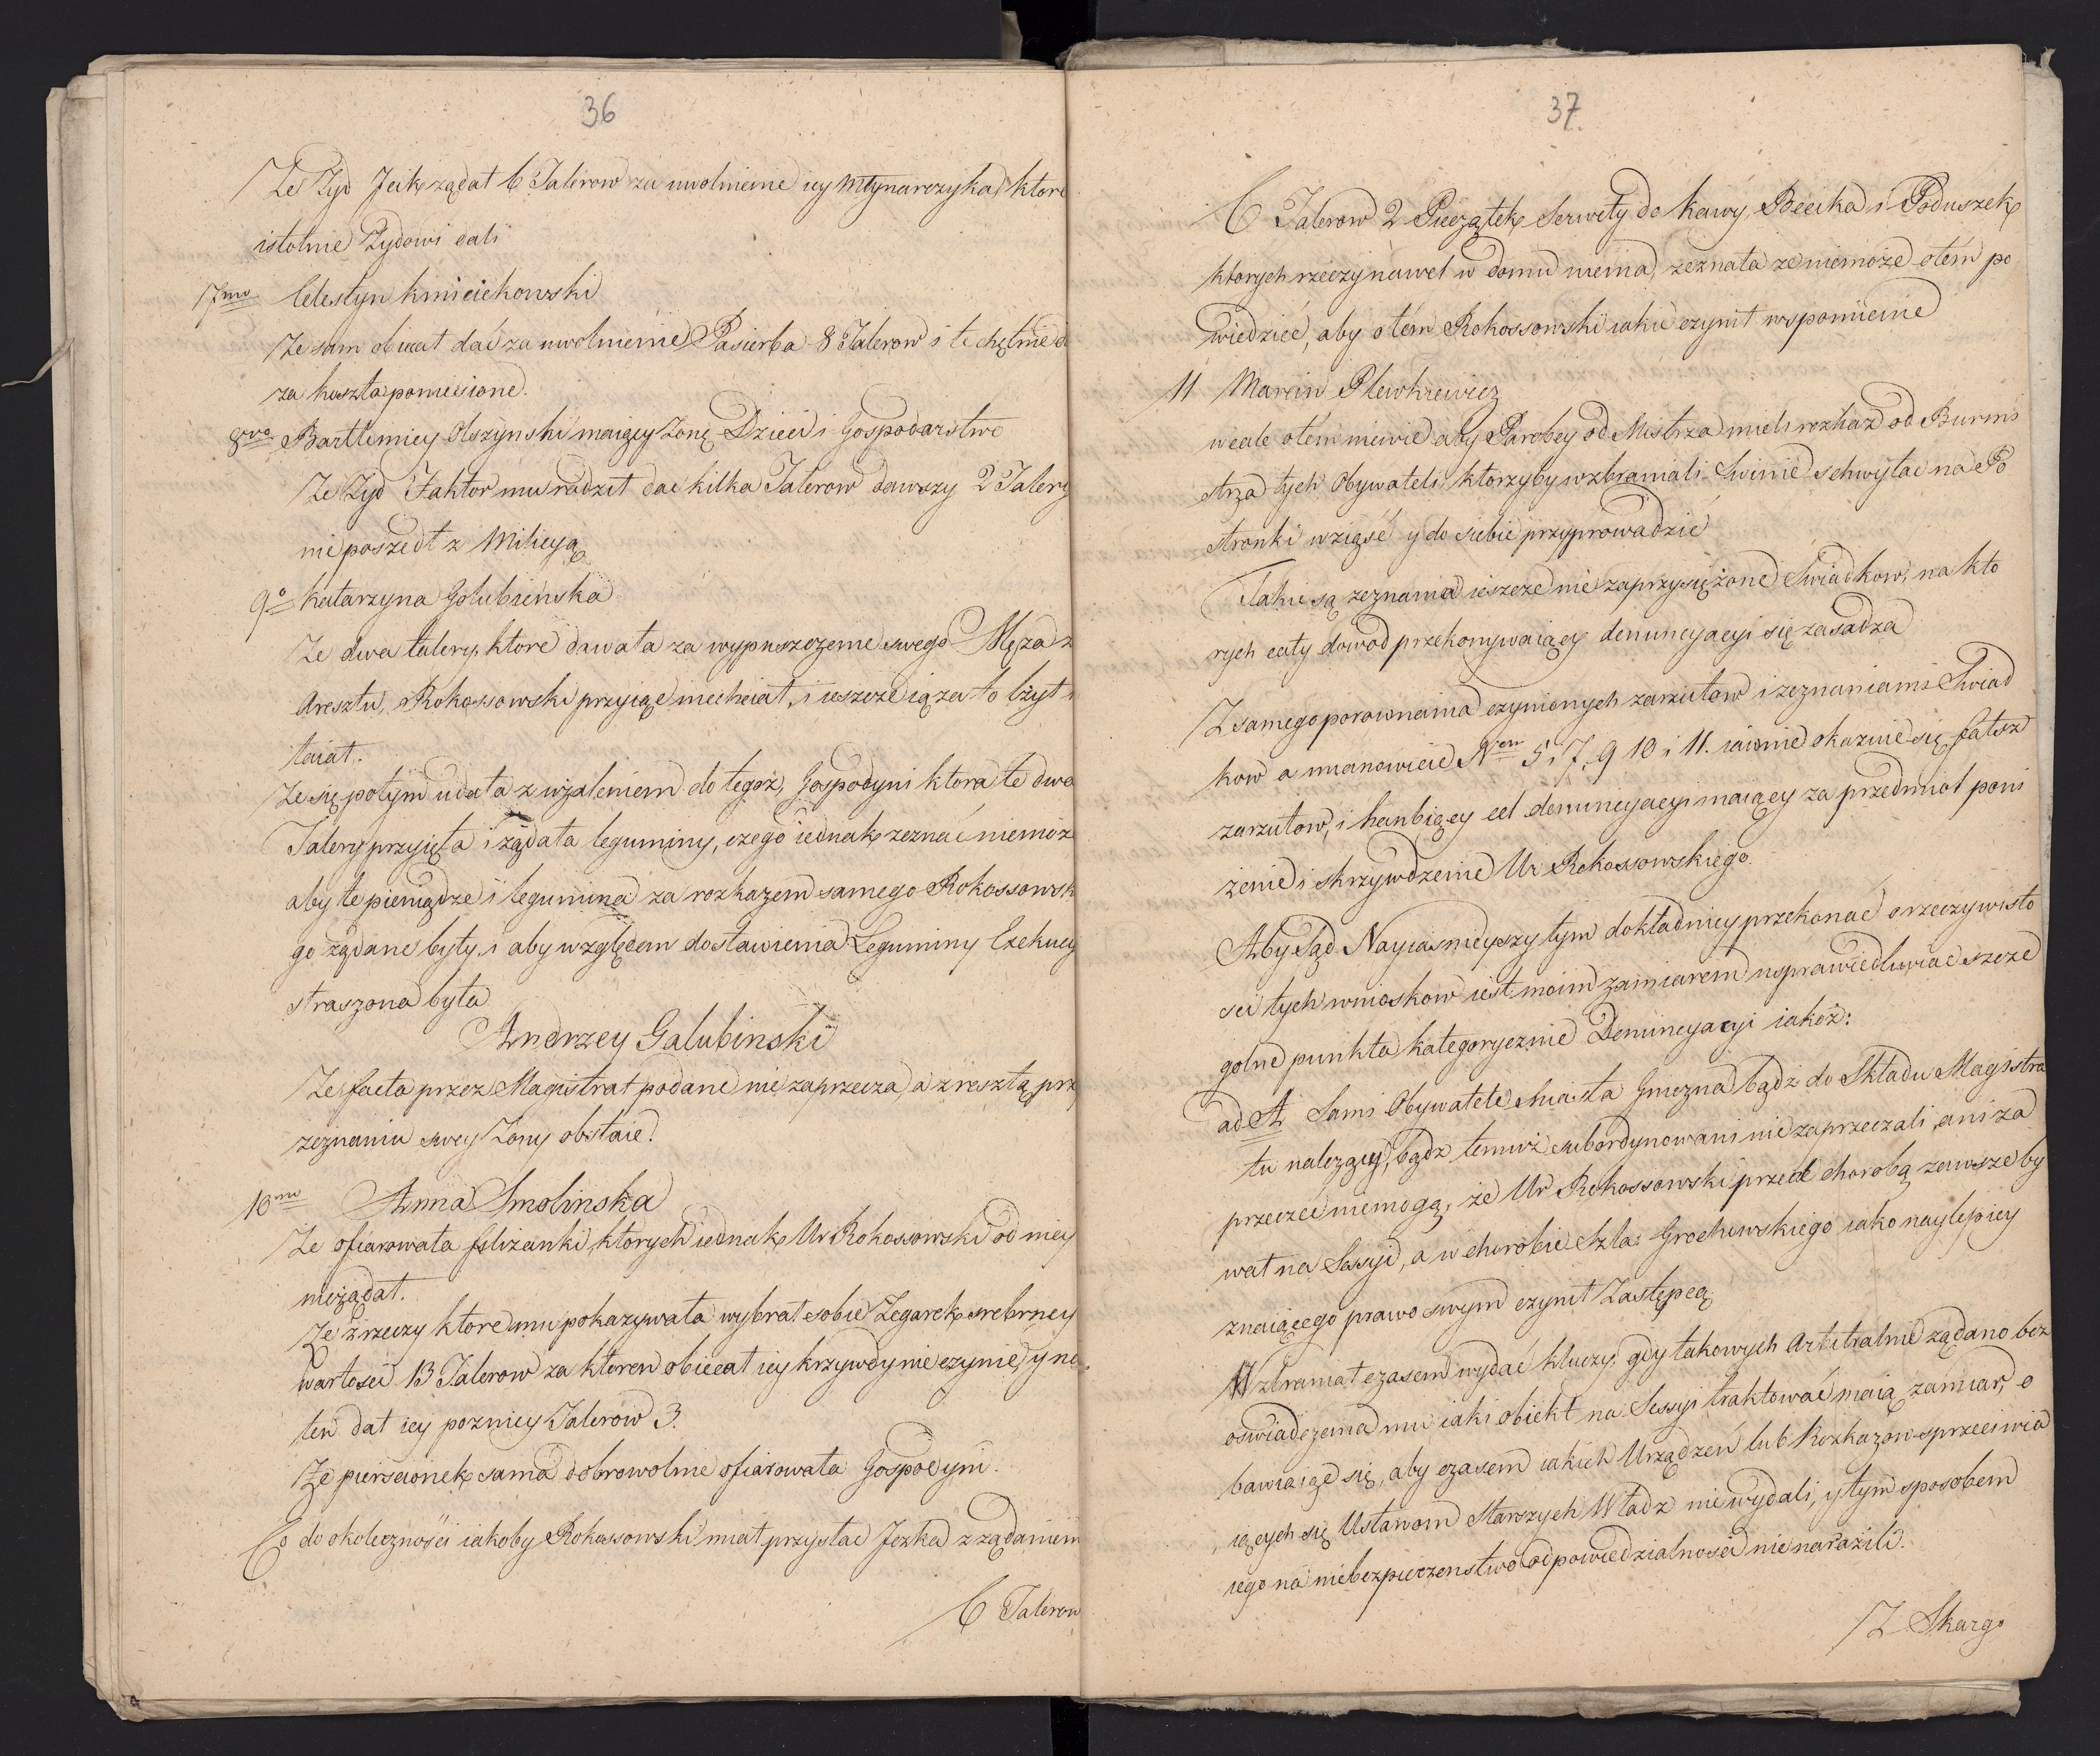 36
Ze Żyd Jcik żądał 6 Talerow za uwolnienie iey Młynarczyka, ktore
istotnie Żydowi dali
7mo Celestyn Kmiciekowski
Ze sam obiecał dać za uwolnienie Pasierba 8 Talerow i te chętnie d
za koszta poniesione.
8vo Bartłomiey Olszynski maiący Żonę Dzieci i Gospodarstwo
Ze Żyd Faktor mu radził dać kilka Talerow dawszy 2 Talery
nie poszedł z Milicyą
9o Katarzyna Golubienska
Ze dwa talery, ktore dawała za wypuszczenie swego Męża z
Aresztu, Rokossowski przyiąć niechciał, i ieszcze ią za to łżył i
łaiał.
Ze się potym udała z użaleniem do tegoż, Gospodyni ktora te dwa
Talery przyięła i żądała leguminy, czego iednak zeznać niemoże
aby te pieniądze i legumina za rozkazem samego Rokossowsk
go żądane były i aby względem dostawienia Leguminy Exekucyą
straszona była
Andrzey Galubinski
Ze facta przez Magistrat podane nie zaprzecza, a zresztą przy
zeznaniu swey Żony obstaie.
10mo Anna Smolinska
Ze ofiarowała filiżanki, ktorych iednak Ur Rokossowski od niey
nieżądał.
Ze z rzeczy ktore mu pokazywała wybrał sobie Zegarek srebrney
wartości 13 Talerow za ktoren obiecał iey krzywdy nie czynić, y na
ten dał iey pozniey Talerow 3.
Ze pierscionek sama dobrowolnie ofiarowała Gospodyni.
Co do okoliczności iakoby Rokossowski miał przysłać Jczka z żądaniem
6 Talerow
37
6 Talerow 2 Pieczątek Serwety do kawy, Becika i Poduszek
ktorych rzeczy nawet w domu niema, zeznała ze niemoże o tém po
wiedzieć, aby o tém Rokossowski iakie czynił wspomnienie
11 Marcin Plewkiewicz
wcale o tém niewie aby Parobcy od Mistrza mieli rozkaz od Burmi
strza tych Obywateli ktorzyby wzbraniali Swinie schwytac na Po
stronki wziąść y do siebie przyprowadzić
Takie są zeznania ieszcze nie zaprzysiężone Swiadkow, na kto
rych cały dowod przekonywaiący denuncyacyi się zasadza
Z samego porownania czynionych zarzutow i zeznaniami Swiad
kow a mianowicie Nrem 5, 7, 9 10 i 11. iawnie okazuie się fałsz
zarzutow, i hanbiący cel denuncyacyi maiący za przedmiot poni
żenie i skrzywdzenie Ur Rokossowskiego.
Aby Sąd Nayiasnieyszy tym dokładniey przekonać o rzeczywisto
sci tych wnioskow iest moim zamiarem usprawiedliwiać szcze
golne punkta kategorycznie Denuncyacyi iakoż:
ad A Sami Obywatele Miasta Gniezna bądź do Składu Magistra
tu należący, bądz temuż subordynowani nie zaprzeczali, ani za
przeczec niemogą, że Ur Rokossowski przed chorobą zawsze by
wał na Sessyi, a w chorobie Szla: Grochowskiego iako naylepiey
znaiącego prawo swym czynił Zastępcą.
Wzbraniał czasem wydać kluczy, gdy takowych Arbitralnie żądano bez
oswiadczenia mu iaki obiekt na Sessyi traktować maią zamiar, o
bawiaiąc się, aby czasem iakich Urządzeń lub Rozkazow sprzeciwia
iących się Ustawom Starszych Władz nie wydali, y tym sposobem
iego na niebezpieczenstwo odpowiedzialnosci nie narazili.
Z Skargo